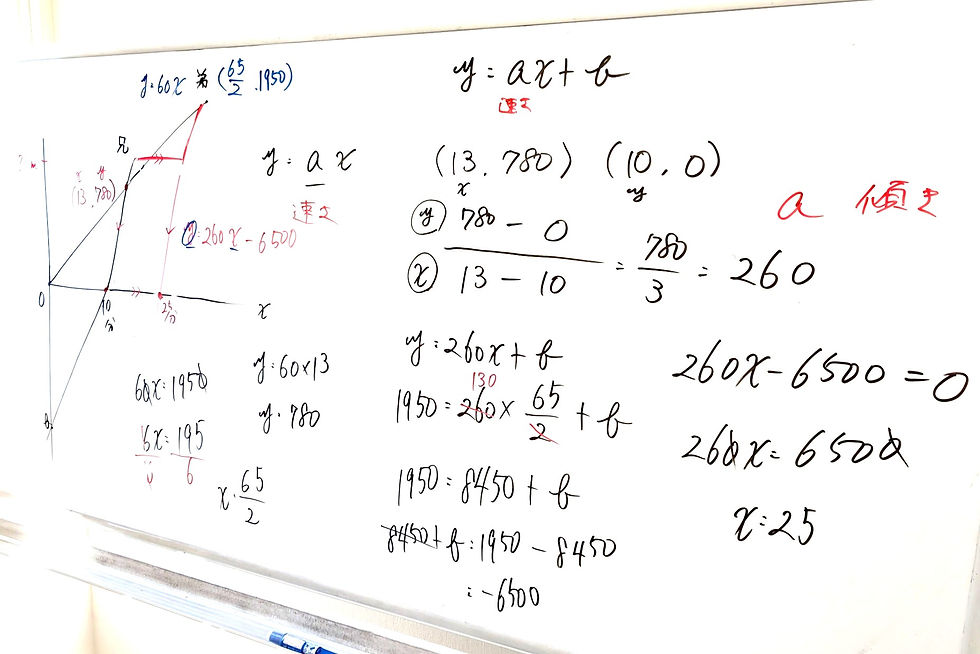 y=60x 弟 (65/2, 1950)
兄
? m
x y
(13, 780)
y=260x-6500
O
10分
25分
x
b
y=ax
速さ
60x=1950
6x/6=195/6
x=65/2
y=60×13
y=780
y=ax+b
速さ
(13, 780) (10, 0)
x y
ⓨ 780-0
ⓧ 13-10
=780/3=260
a 傾き
y=260x+b
130
1950=260×65/2+b
1950=8450+b
8450+b=1950-8450
=-6500
260x-6500=0
260x=6500
x=25